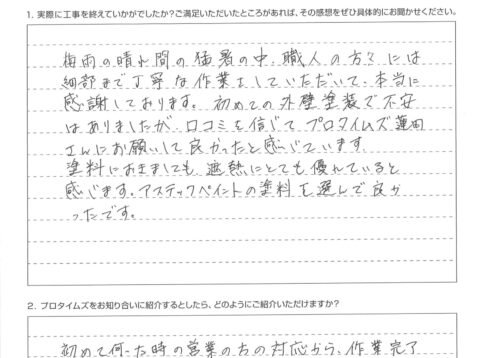 1. 実際に工事を終えていかがでしたか？ご満足いただいたところがあれば、その感想をぜひ具体的にお聞かせください。
梅雨の晴れ間の猛暑の中、職人の方々には
細部まで丁寧な作業をしていただいて、本当に
感謝しております。初めての外壁塗装で不安
はありましたが、口コミを信じて プロタイムズ蓮田
さんにお願いして良かったと感じています。
塗料におきましても、遮熱にとても優れていると
感じます。アステックペイントの塗料を選んで良か
ったです。
2. プロタイムズをお知り合いに紹介するとしたら、どのようにご紹介いただけますか？
初めて伺った時の営業の方の対応から、作業完了